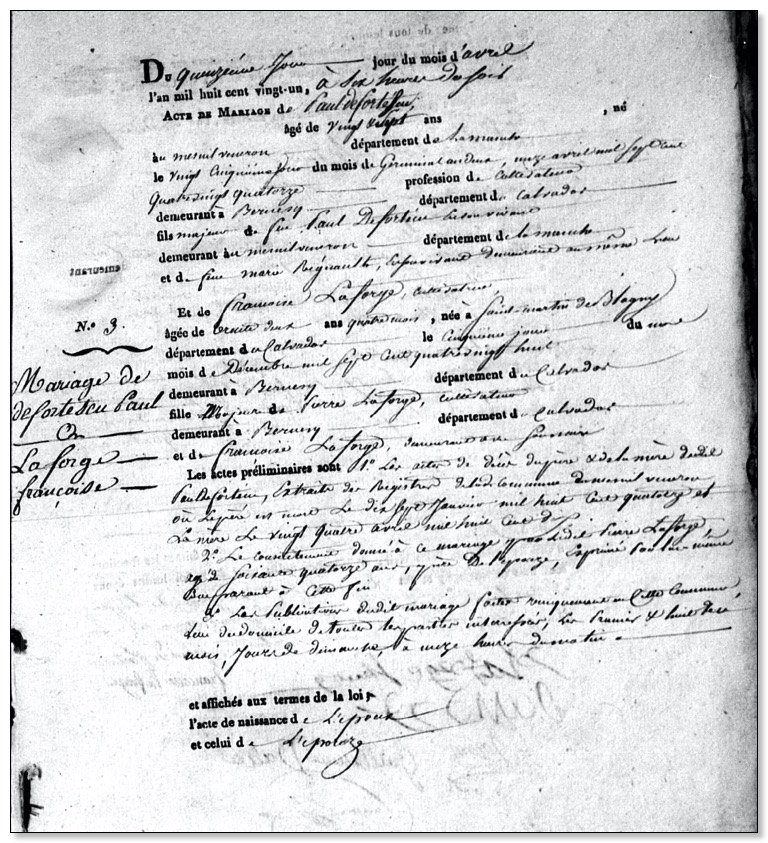 Du quinzième Jour jour du mois d'avril
l'an mil huit cent vingt-un, à Six heures du soir
ACTE DE MARIAGE de Paul deforteseu,
âgé de vingt sept ans , né
au mesnil veneron département de la manche
le vingt cinquième jour du mois de Germinal an deux, onze avril mil sept cent
quatrevingt quatorze profession de cultivateur
demeurant à Bernesq département de Calvados
fils majeur de feu Paul Deforteseu
demeurant au mesnil veneron département de la manche
et de feue marie Regnault, en son vivant demeurant au même Lieu
Et de francoise Laforge, cultivatrice,
N.° 3. âgée de trente deux ans quatre mois , née à Saint martin de Blagny
département du Calvados le cinquième jour du
mois de Décembre mil sept cent quatrevingt huit
Mariage de
demeurant à Bernesq département du Calvados
deforteseu Paul
fille Majeure de Pierre Laforge, cultivateur
&
demeurant à Bernesq département du Calvados
Laforge
et de francoise Laforge, demeurant
françoise
Les actes préliminaires sont 1° Les actes de décès du père & de la mère dudit
Paul Deforteseu, Extraits des Registres de la commune du mesnil veneron
où Le père est mort Le dix sept Janvier mil huit cent quatorze et
La mère Le vingt quatre avril mil huit cent
2° Le consentement donné à ce mariage par Ledit Pierre Laforge,
âgé de soixante quatorze ans, père De l'epouze, exprimé par lui-même
comparant à cette fin
3° Les Publications dudit mariage faites uniquement en cette Commune,
Lieu du domicile de toutes les parties interessées, Les Premier & huit de ce
mois, Jours de dimanche à onze heures du matin
et affichés aux termes de la loi,
l'acte de naissance de L'epoux
et celui de L'epouze